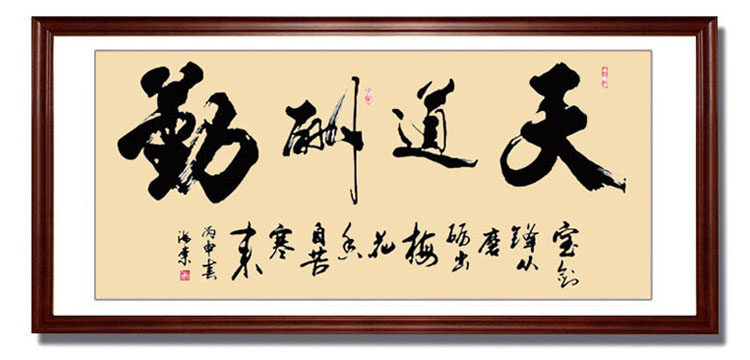 天道酬勤
宝剑锋从磨砺出梅花香自苦寒来
丙申春